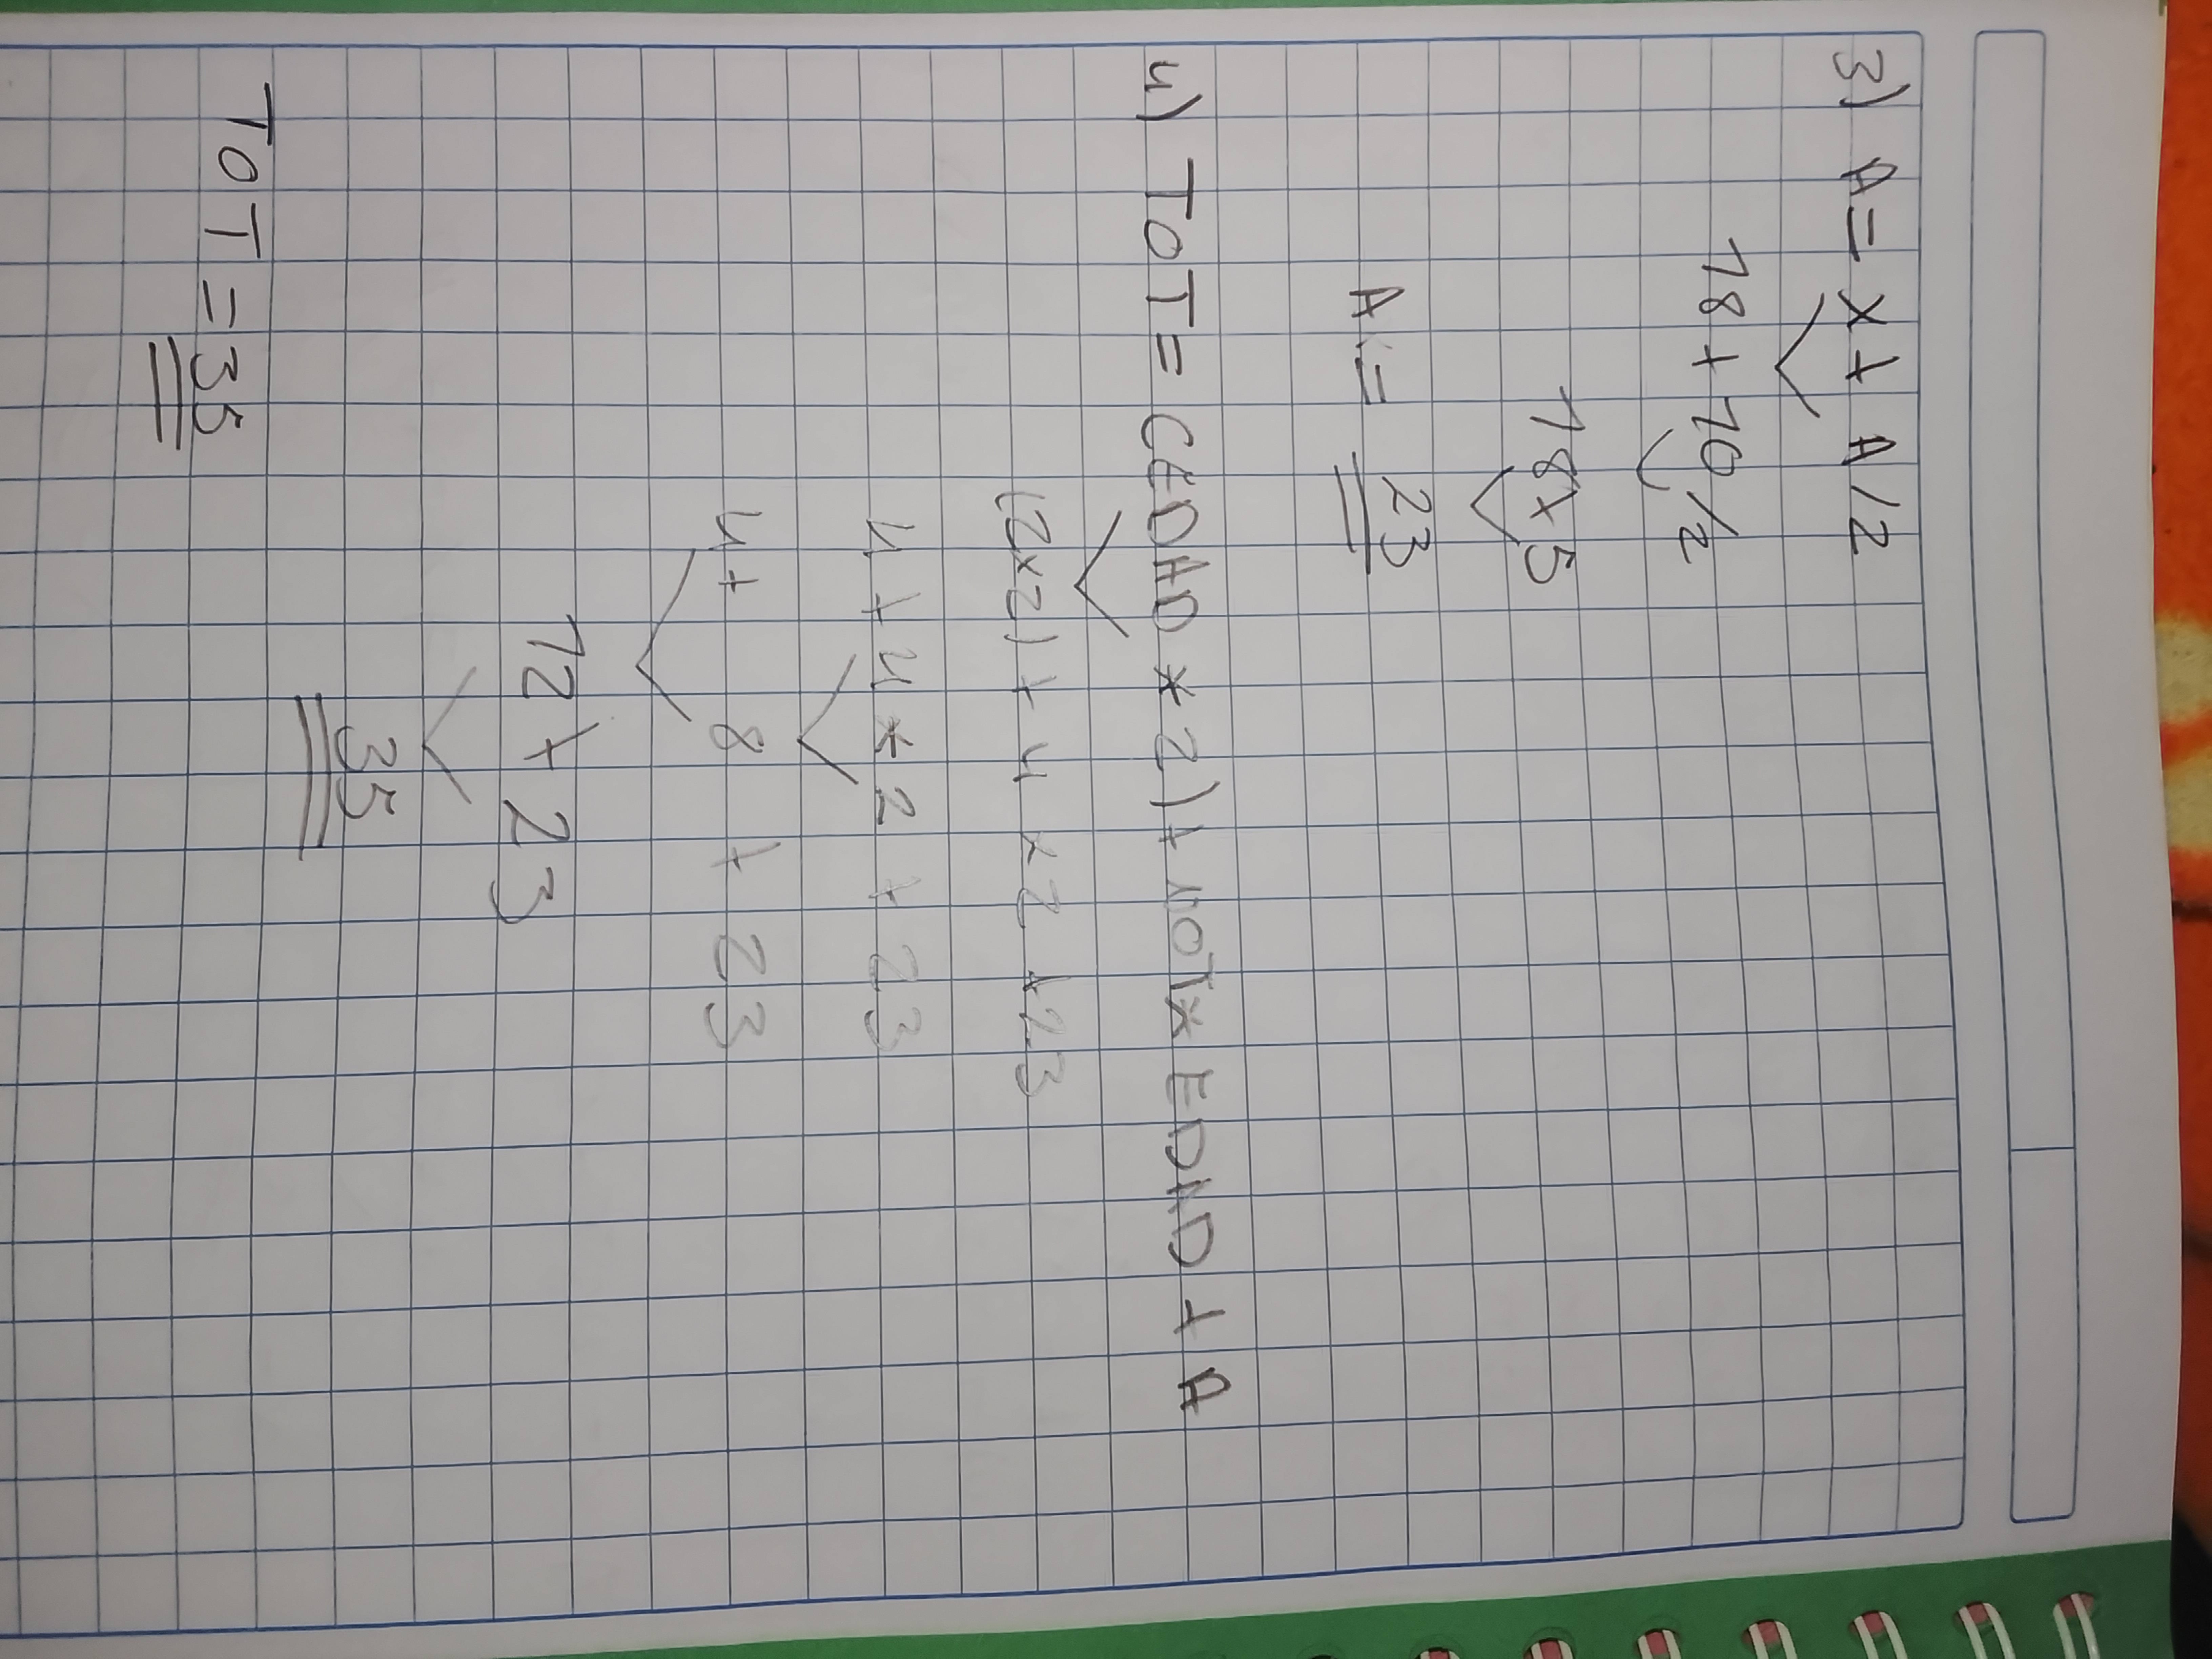 3) A = X + A/2
18 + 10/2
18 + 5
A = 23
4) TOT = (EDAD * 2) + NOT * EDAD + A
(2x2) + 4 x 2 + 23
4 + 4 * 2 + 23
4 + 8 + 23
12 + 23
35
TOT = 35